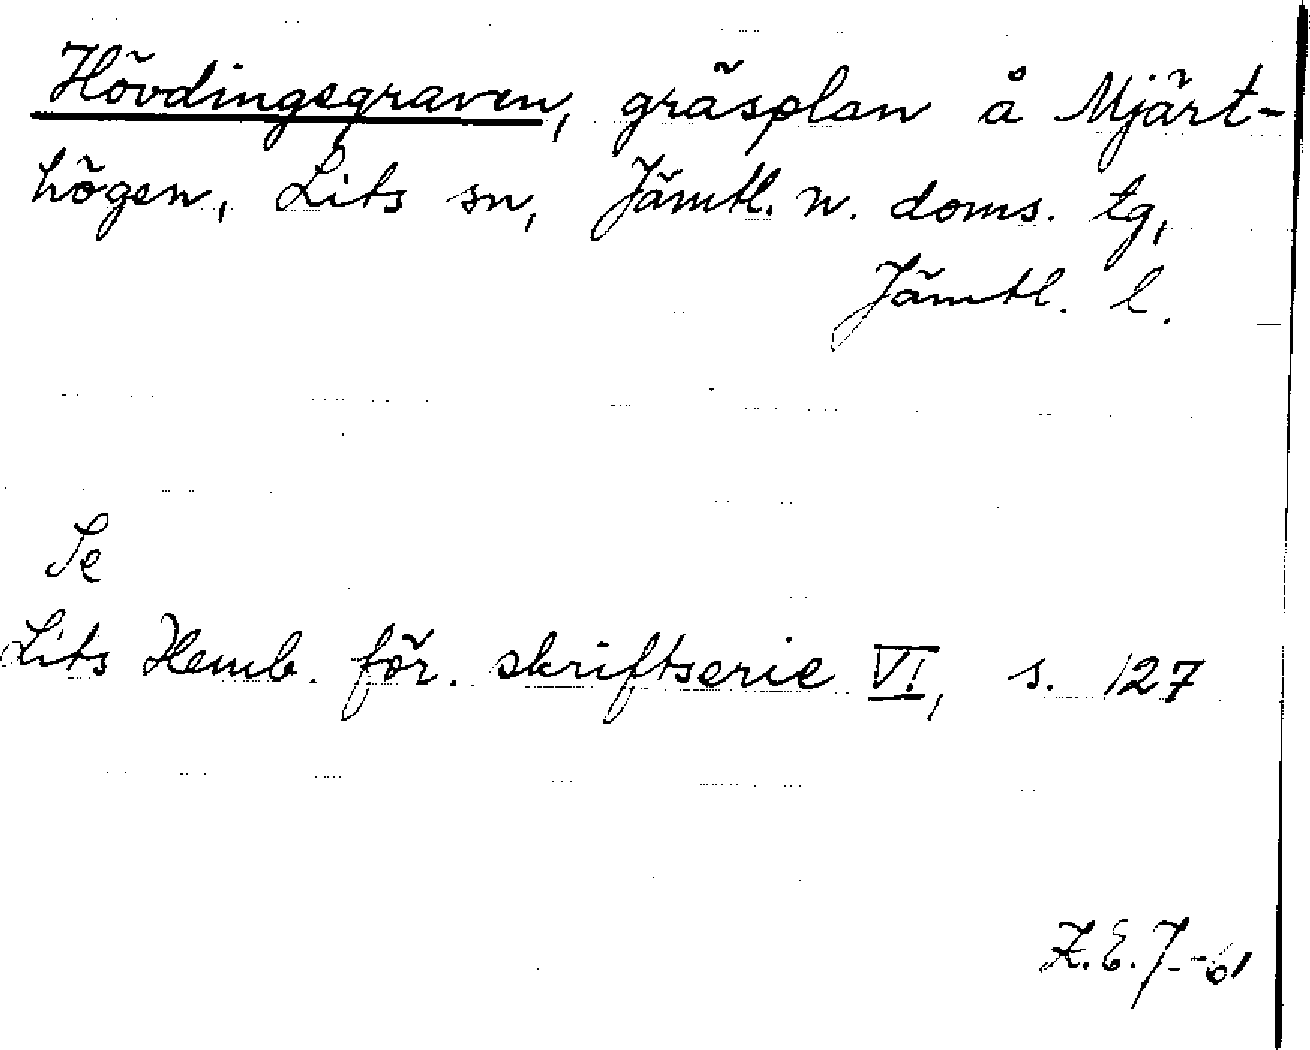 Hövdingsgraven, gräsplan å Mjärt-
högen, Lits sn, Jämtl. n. doms. tg,
Jämtl. l.
Se
Lits Hemb. för. skriftserie VI, s. 127
Z.E.J-61